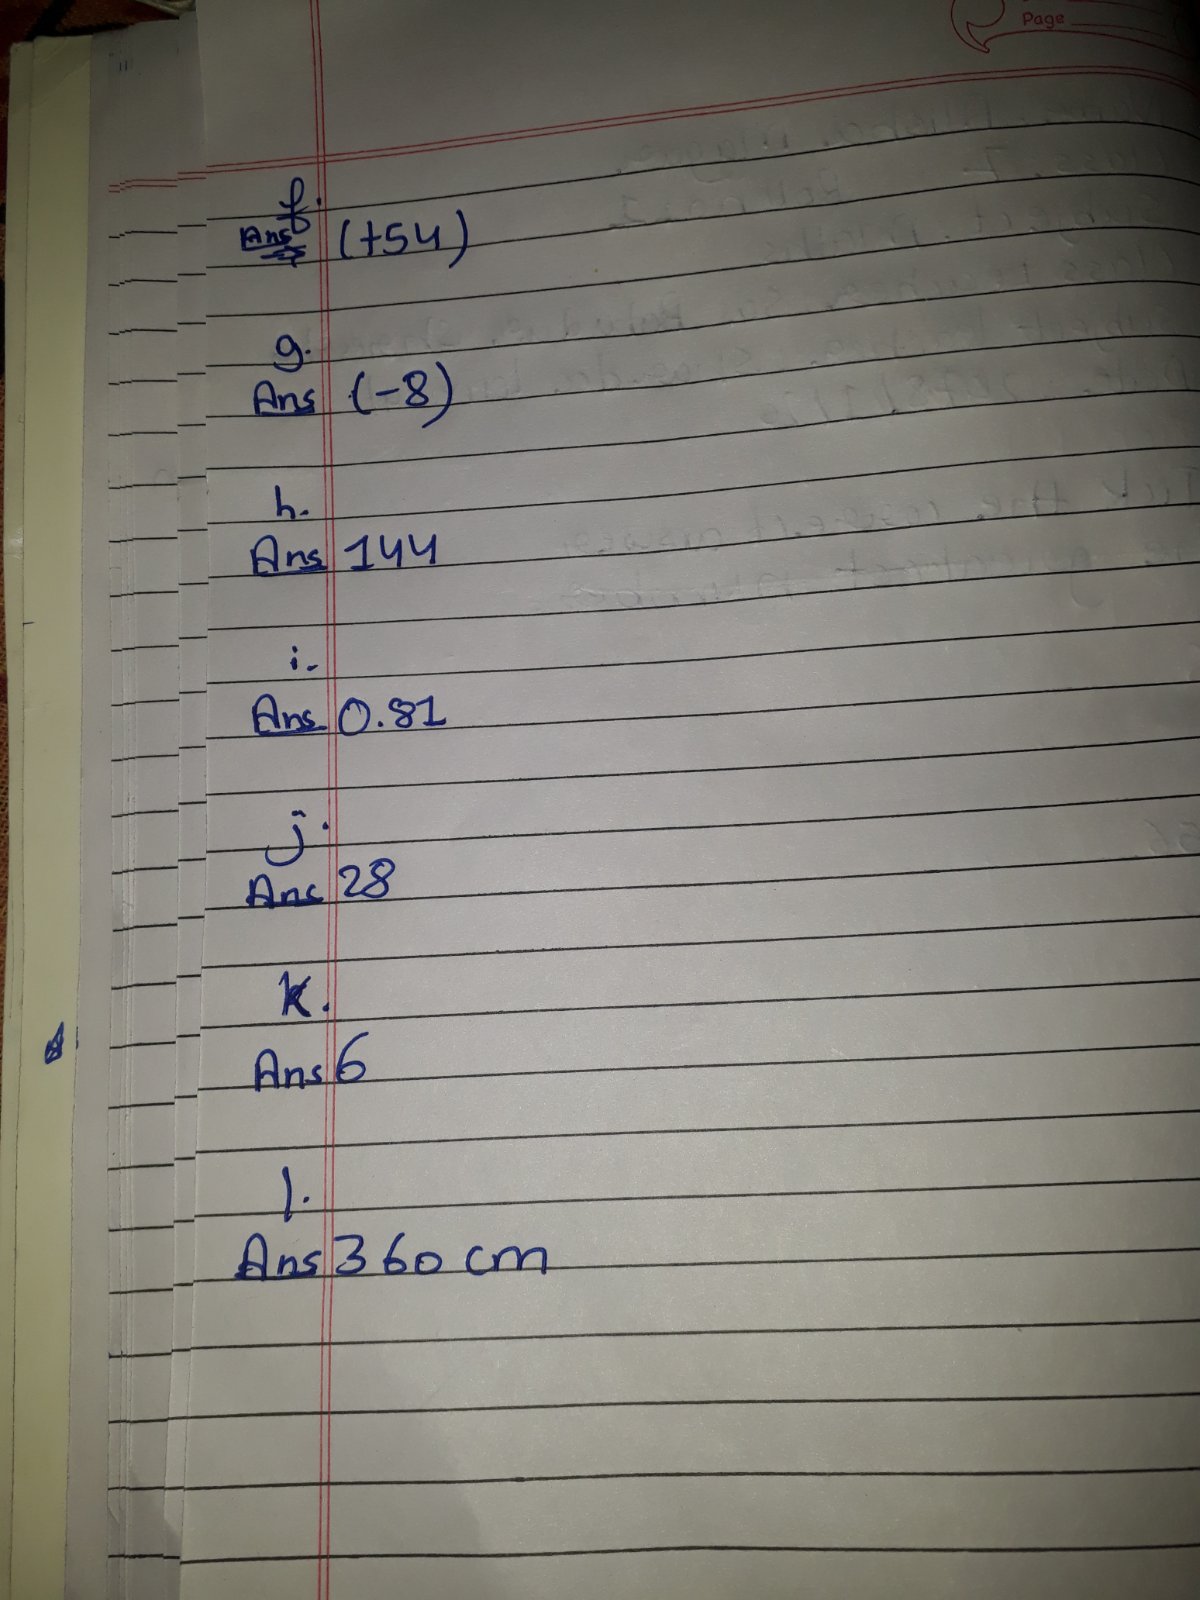 Page
f.
Ans (+54)
g.
Ans (-8)
h.
Ans 144
i.
Ans 0.81
j.
Ans 28
k.
Ans 6
l.
Ans 360 cm